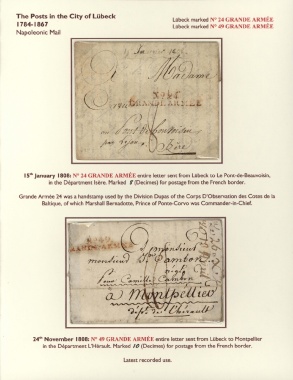 The Posts in the City of Lübeck
1784-1867
Napoleonic Mail
Lübeck marked Nº 24 GRANDE ARMÉE
Lübeck marked Nº 49 GRANDE ARMÉE
Madame
Nº 24
GRANDE ARMÉE
au Pont de Beauvoisin
Isère
15th January 1808: Nº 24 GRANDE ARMÉE entire letter sent from Lübeck to Le Pont-de-Beauvoisin,
in the Départment Isère. Marked 8 (Decimes) for postage from the French border.
Grande Armée 24 was a handstamp used by the Division Dupas of the Corps D'Observation des Costes de la
Baltique, of which Marshall Bernadotte, Prince of Ponte-Corvo was Commander-in-Chief.
GRANDE ARMÉE
a monsieur
monsieur Cambon
pour Camille Cambon
à Montpellier
dépt de l'hérault
24th November 1808: Nº 49 GRANDE ARMÉE entire letter sent from Lübeck to Montpellier
in the Départment L'Hérault. Marked 10 (Decimes) for postage from the French border.
Latest recorded use.